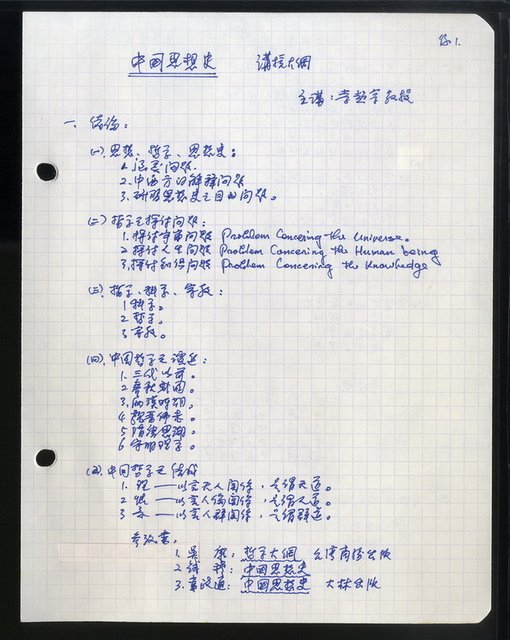 1.
中國思想史 講授大綱
主講：李超宇教授
一、緒論：
(一)、思想、哲學、思想史：
1. 涵義問題。
2. 中西方的解釋問題
3. 研習思想史之目的問題。
(二)、哲學之探討問題：
1. 探討宇宙問題 Problem Concering the Universe.
2 探討人生問題 Problem Concering the Human being
3. 探討知識問題 Problem Concering the Knowledge
(三)、哲學、科學、宗教：
1 科學。
2. 哲學。
3 宗教。
(四)、中國哲學之演進：
1. 三代以前。
2 春秋戰國。
3. 兩漢時期，
4 魏晉佛老。
5 隋唐思潮。
6 宋明理學。
(五)、中國哲學之結構
1. ——以言天人關係，是謂天道。
2 ——以言人倫關係，是謂人道。
3 ——以言人群關係，是謂群道。
參考書：
1. 吳康：哲學大綱 台灣商務出版
2 錢穆：中國思想史
3. 韋政通：中國思想史 大林出版